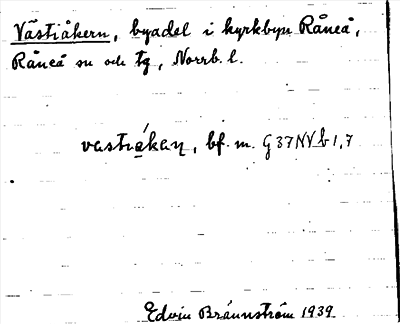 Västiåkern, byadel i kyrkbyn Råneå,
Råneå sn och tg, Norrb. l.
vastıákaɳ, bf. m. G37NVb1,7
Edvin Brännström 1939